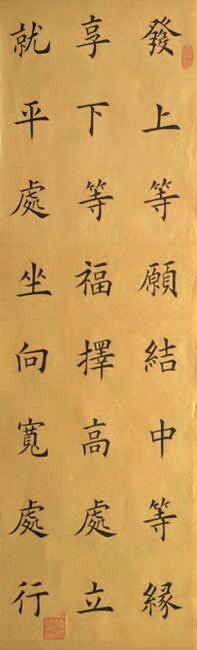 發上等願結中等緣
享下等福擇高處立
就平處坐向寬處行